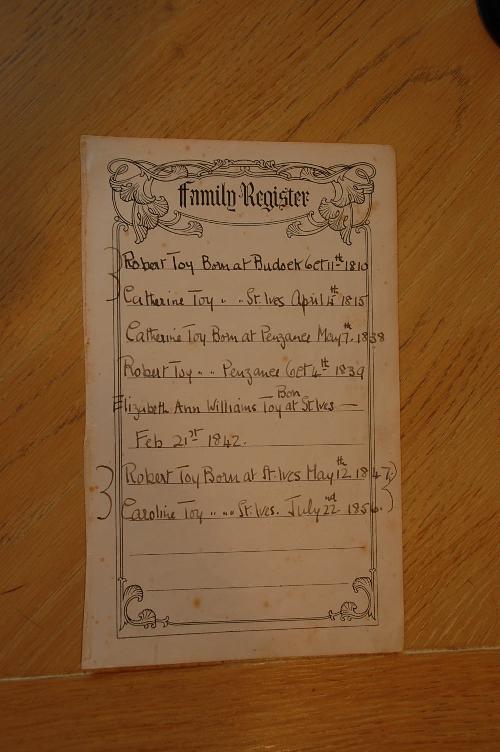 Family Register
Robert Toy Born at Budock Oct 11th 1810
Catherine Toy " " St. Ives April 4th 1815
Catherine Toy Born at Penzance May 7th 1838
Robert Toy " " Penzance Oct 4th 1839
Elizabeth Ann Williams Toy Born at St Ives —
Feb 21st 1842.
Robert Toy Born at St. Ives May 12th 1847
Caroline Toy " " " St. Ives. July 22nd 1856.